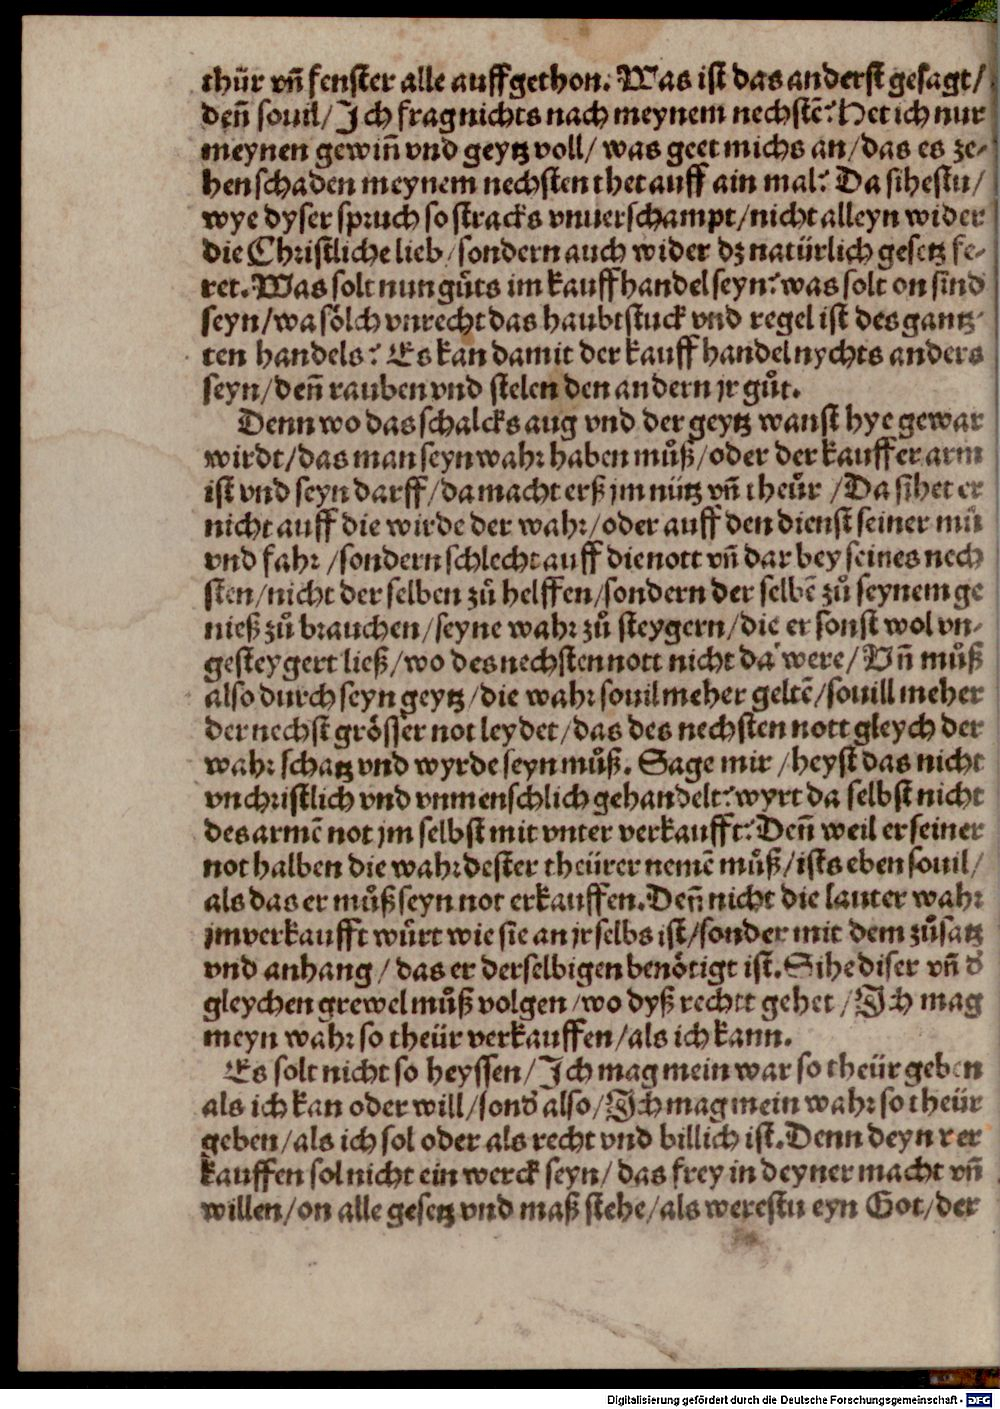 thür vñ fenster alle auffgethon. Was ist das anderst gesagt/
deñ souil/ Ich frag nichts nach meynem nechstē? Het ich nur
meynen gewiñ vnd geytz voll/ was geet michs an/ das es ze-
hen schaden meynem nechsten thet auff ain mal? Da sihestu/
wye dyser spruch so stracks vnuerschampt/ nicht alleyn wider
die Christliche lieb/ sondern auch wider dz natürlich gesetz fe-
ret. Was solt nun gůts im kauffhandel seyn? was solt on sind
seyn/ wa sölch vnrecht das haubtstuck vnd regel ist des gantz-
ten handels? Es kan damit der kauffhandel nychts anders
seyn/ deñ rauben vnd stelen den andern jr gůt.
Denn wo das schalcks aug vnd der geytz wanst hye gewar
wirdt/ das man seyn wahr haben můß/ oder der kauffer arm
ist vnd seyn darff/ da macht erß jm nütz vñ theůr/ Da sihet er
nicht auff die wirde der wahr/ oder auff den dienst seiner mů
vnd fahr/ sondern schlecht auff die nott vñ dar bey seines nech
sten/ nicht der selben zů helffen/ sondern der selbē zů seynem ge
nieß zů brauchen/ seyne wahr zů steygern/ die er sonst wol vn-
gesteygert ließ/ wo des nechsten nott nicht da were/ Vñ můß
also durch seyn geytz/ die wahr souil meher geltē/ souill meher
der nechst grösser not leydet/ das des nechsten nott gleych der
wahr schatz vnd wyrde seyn můß. Sage mir/ heyst das nicht
vnchristlich vnd vnmenschlich gehandelt? wyrt da selbst nicht
des armē not jm selbst mit vnter verkaufft? Deñ weil er seiner
not halben die wahr dester theürer nemē můß/ ists eben souil/
als das er můß seyn not erkauffen. Deñ nicht die lauter wahr
jm verkaufft würt wie sie an jr selbs ist/ sonder mit dem zůsatz
vnd anhang/ das er derselbigen benötigt ist. Sihe diser vñ d̄
gleychen grewel můß volgen/ wo dyß rechtt gehet/ Ich mag
meyn wahr so theür verkauffen/ als ich kann.
Es solt nicht so heyssen/ Ich mag mein war so theür geben
als ich kan oder will/ sond̄ also/ Ich mag mein wahr so theür
geben/ als ich sol oder als recht vnd billich ist. Denn deyn ver
kauffen sol nicht ein werck seyn/ das frey in deyner macht vñ
willen/ on alle gesetz vnd maß stehe/ als werestu eyn Got/ der
Digitalisierung gefördert durch die Deutsche Forschungsgemeinschaft - DFG